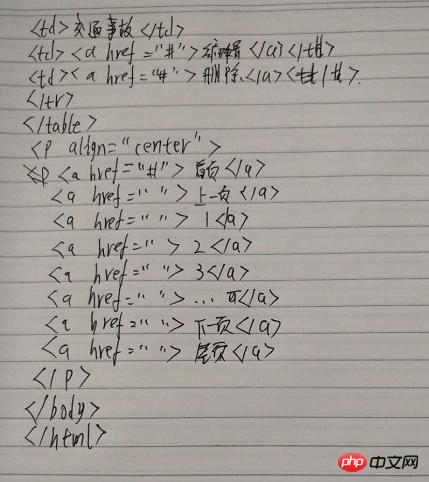 <td> 交通事故 </td>
<td> <a href="#"> 编辑 </a> </td>
<td> <a href="#"> 删除 </a> </td>.
</tr>
</table>
<p align="center">
<a href="#"> 首页 </a>
<a href=" "> 上一页 </a>
<a href=" "> 1 </a>
<a href=" "> 2 </a>
<a href=" "> 3 </a>
<a href=" "> ... </a>
<a href=" "> 下一页 </a>
<a href=" "> 尾页 </a>
</p>
</body>
</html>
php 中文网